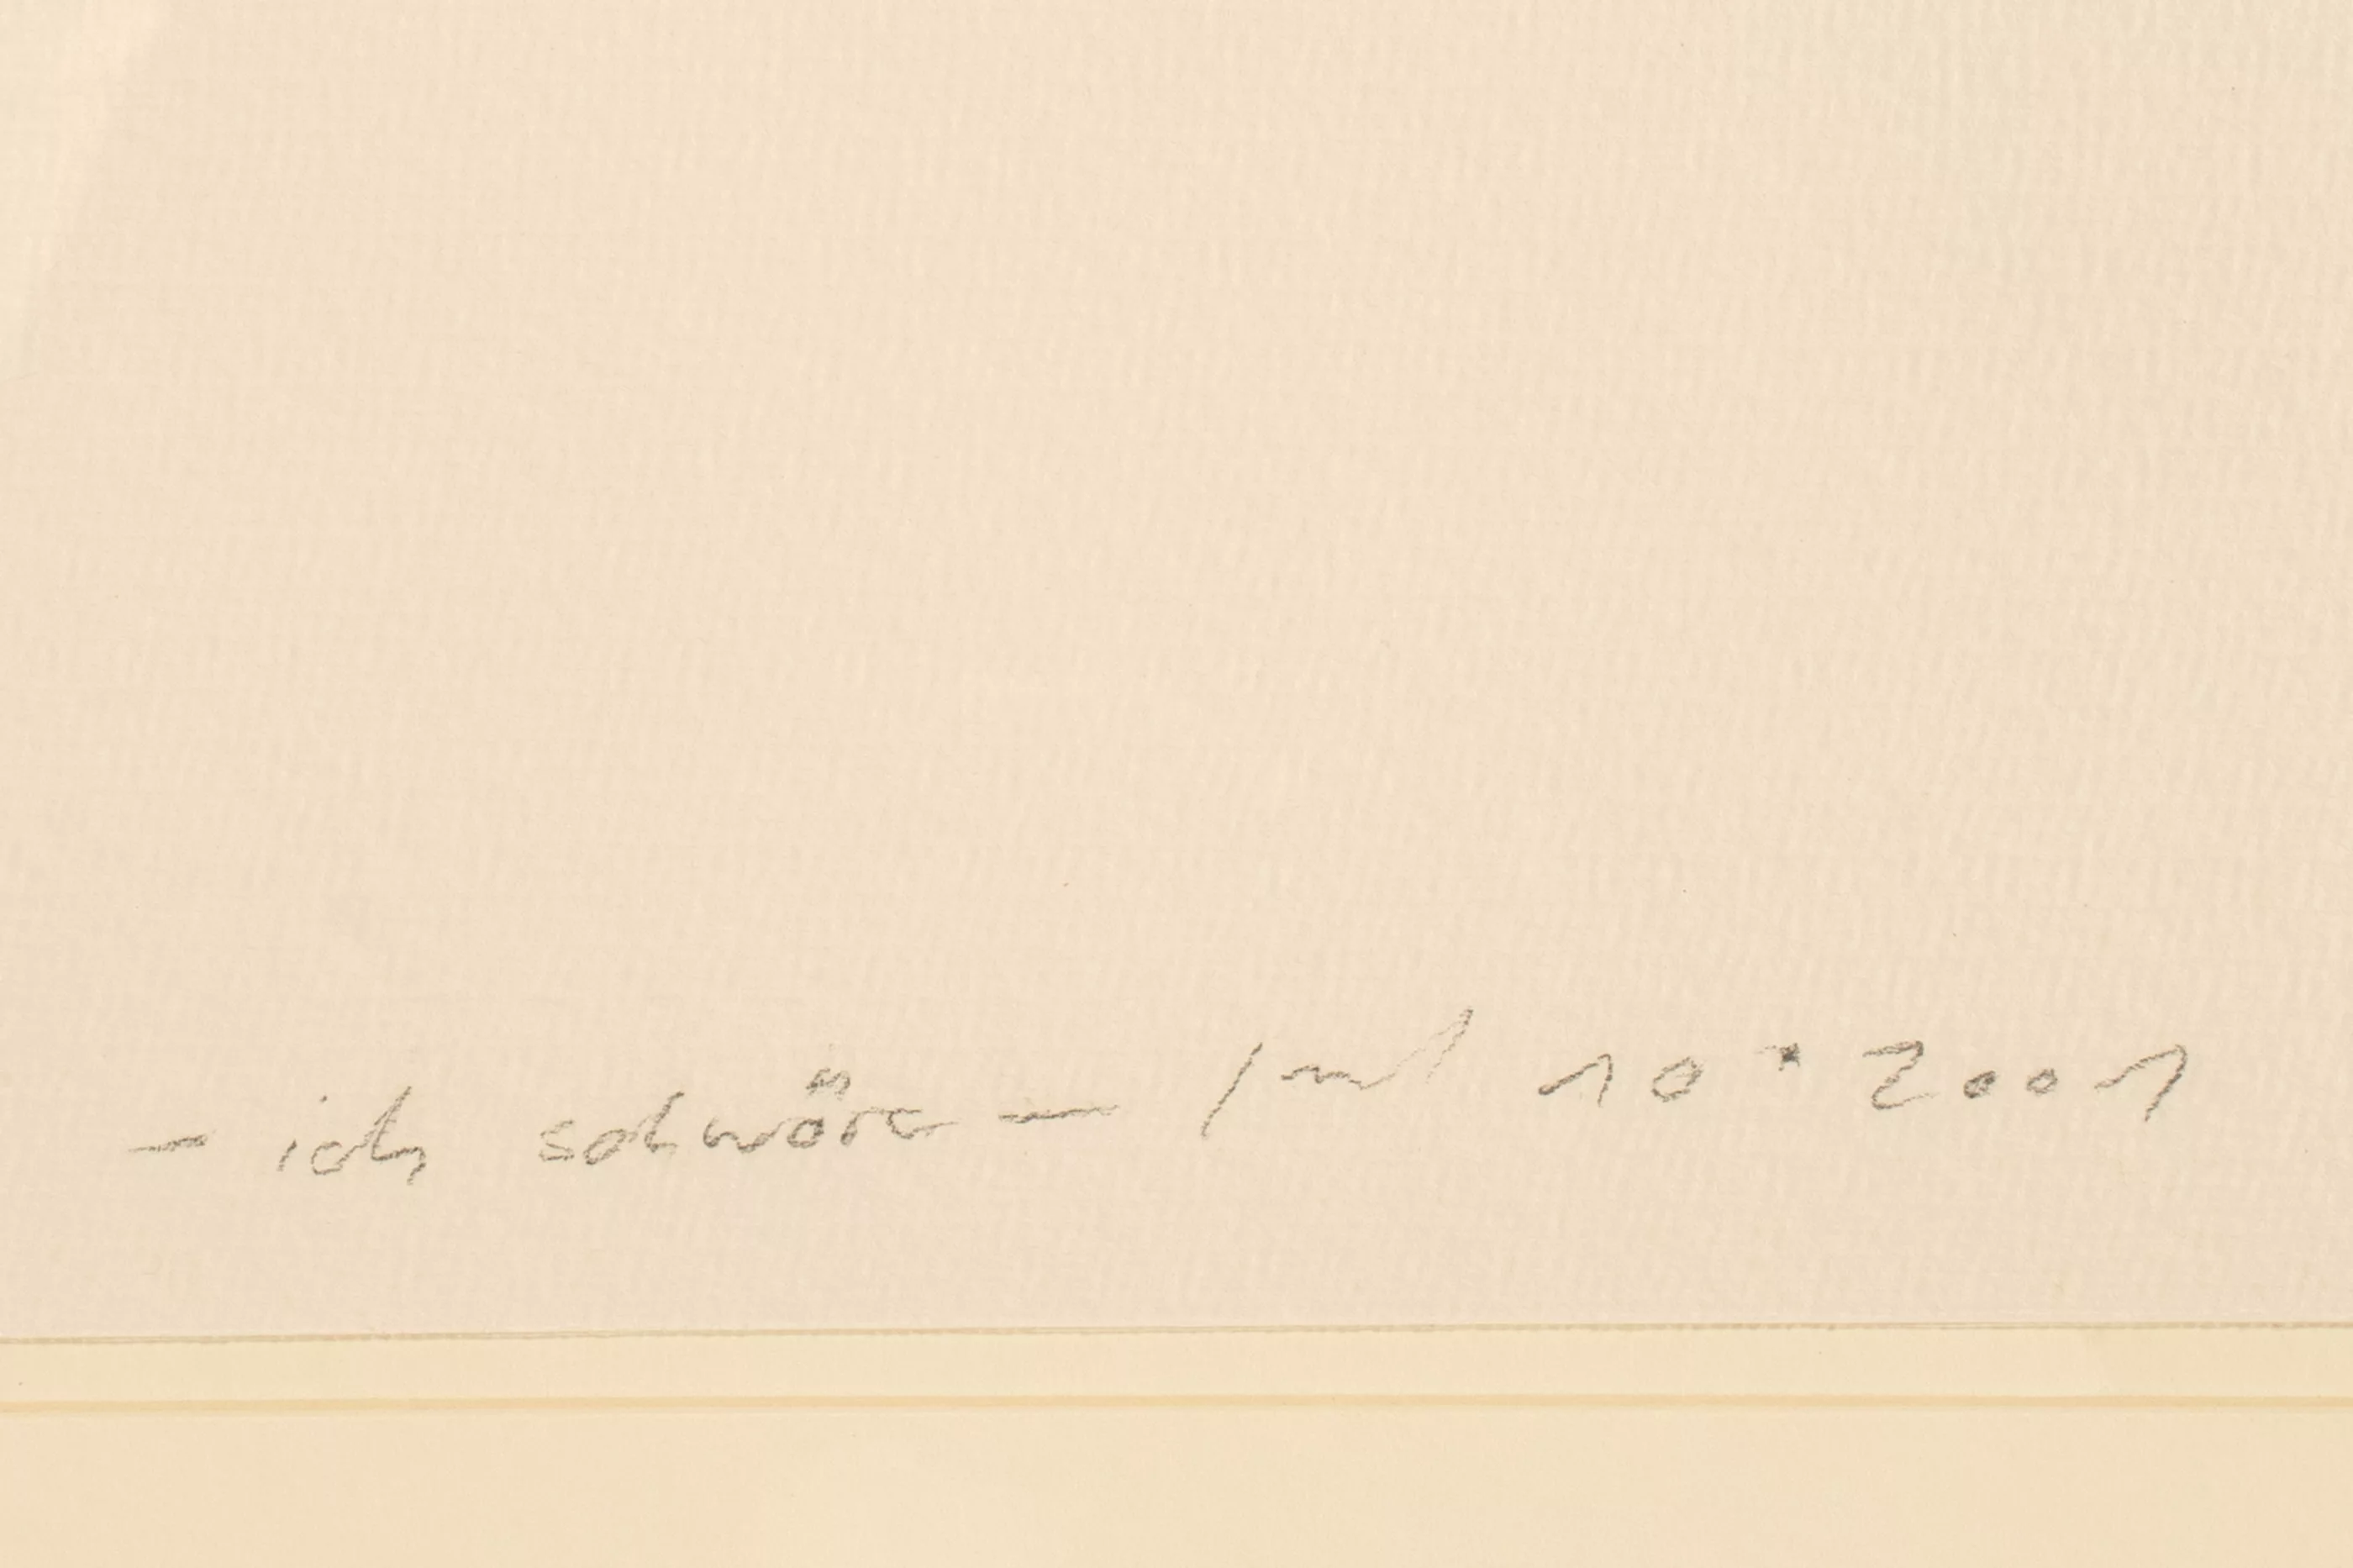 – ich schwöre – 10 · 2001